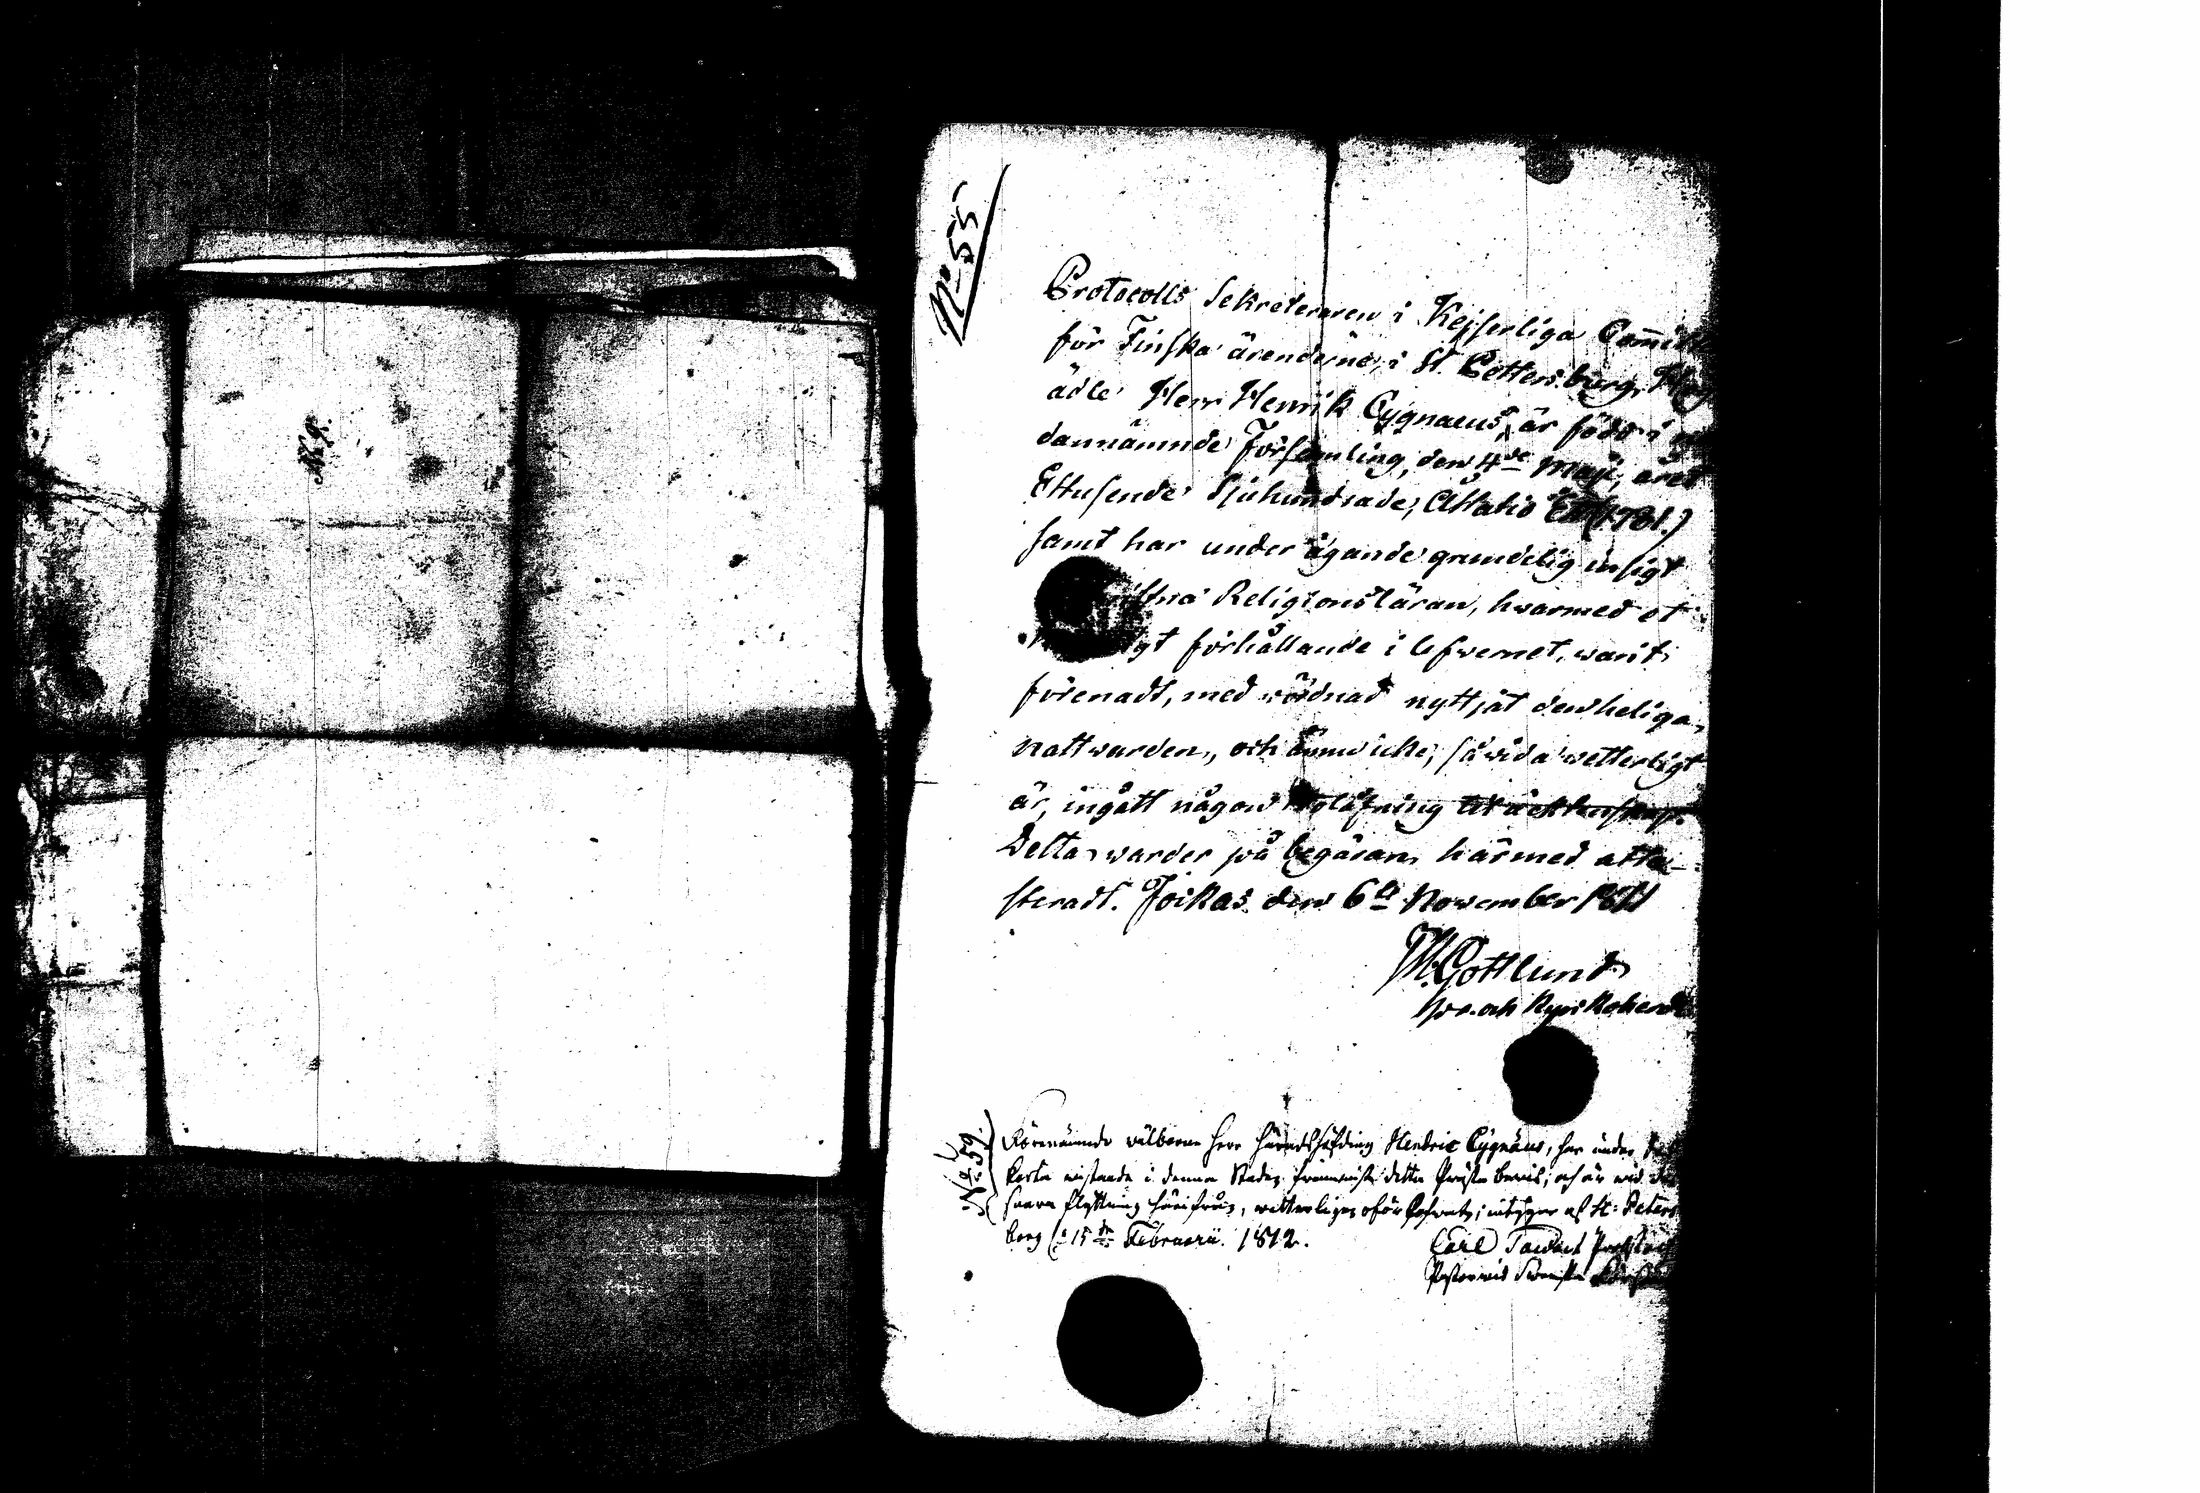 No 9.
No 55
Protocolls Sekreteraren i Kejserliga
för Finska ärenderne, i St. Pettersburg,
ädle Herr Henrik Cygnaeus, är född i
dannämnde Församling, den 4de Maji, året
Ettusende Sjuhundrade, Åttatio Ett (1781.)
samt har under ägande grundelig insigt
Religionsläran, hwarmed et
förhållande i lefwernet, warit
förenadt, med wördnad nyttjat den heliga
nattwarden, och ännu icke, så wida wetterligt
är, ingått någon
Detta warder på begäran härmed atte-
steradt. Joikas den 6te November 1811
M. Gottlund
och Kyrkoherde
No 59.
Förmämnde wälborne Herr Häradshöfding Hendric Cygnäus, har under
korta wistande i denna Stad, detta bewis; och är wid
flyttning härifrån, af St. Peters-
borg 15de Februarii. 1812.
Carl
Pastor wid Swenska